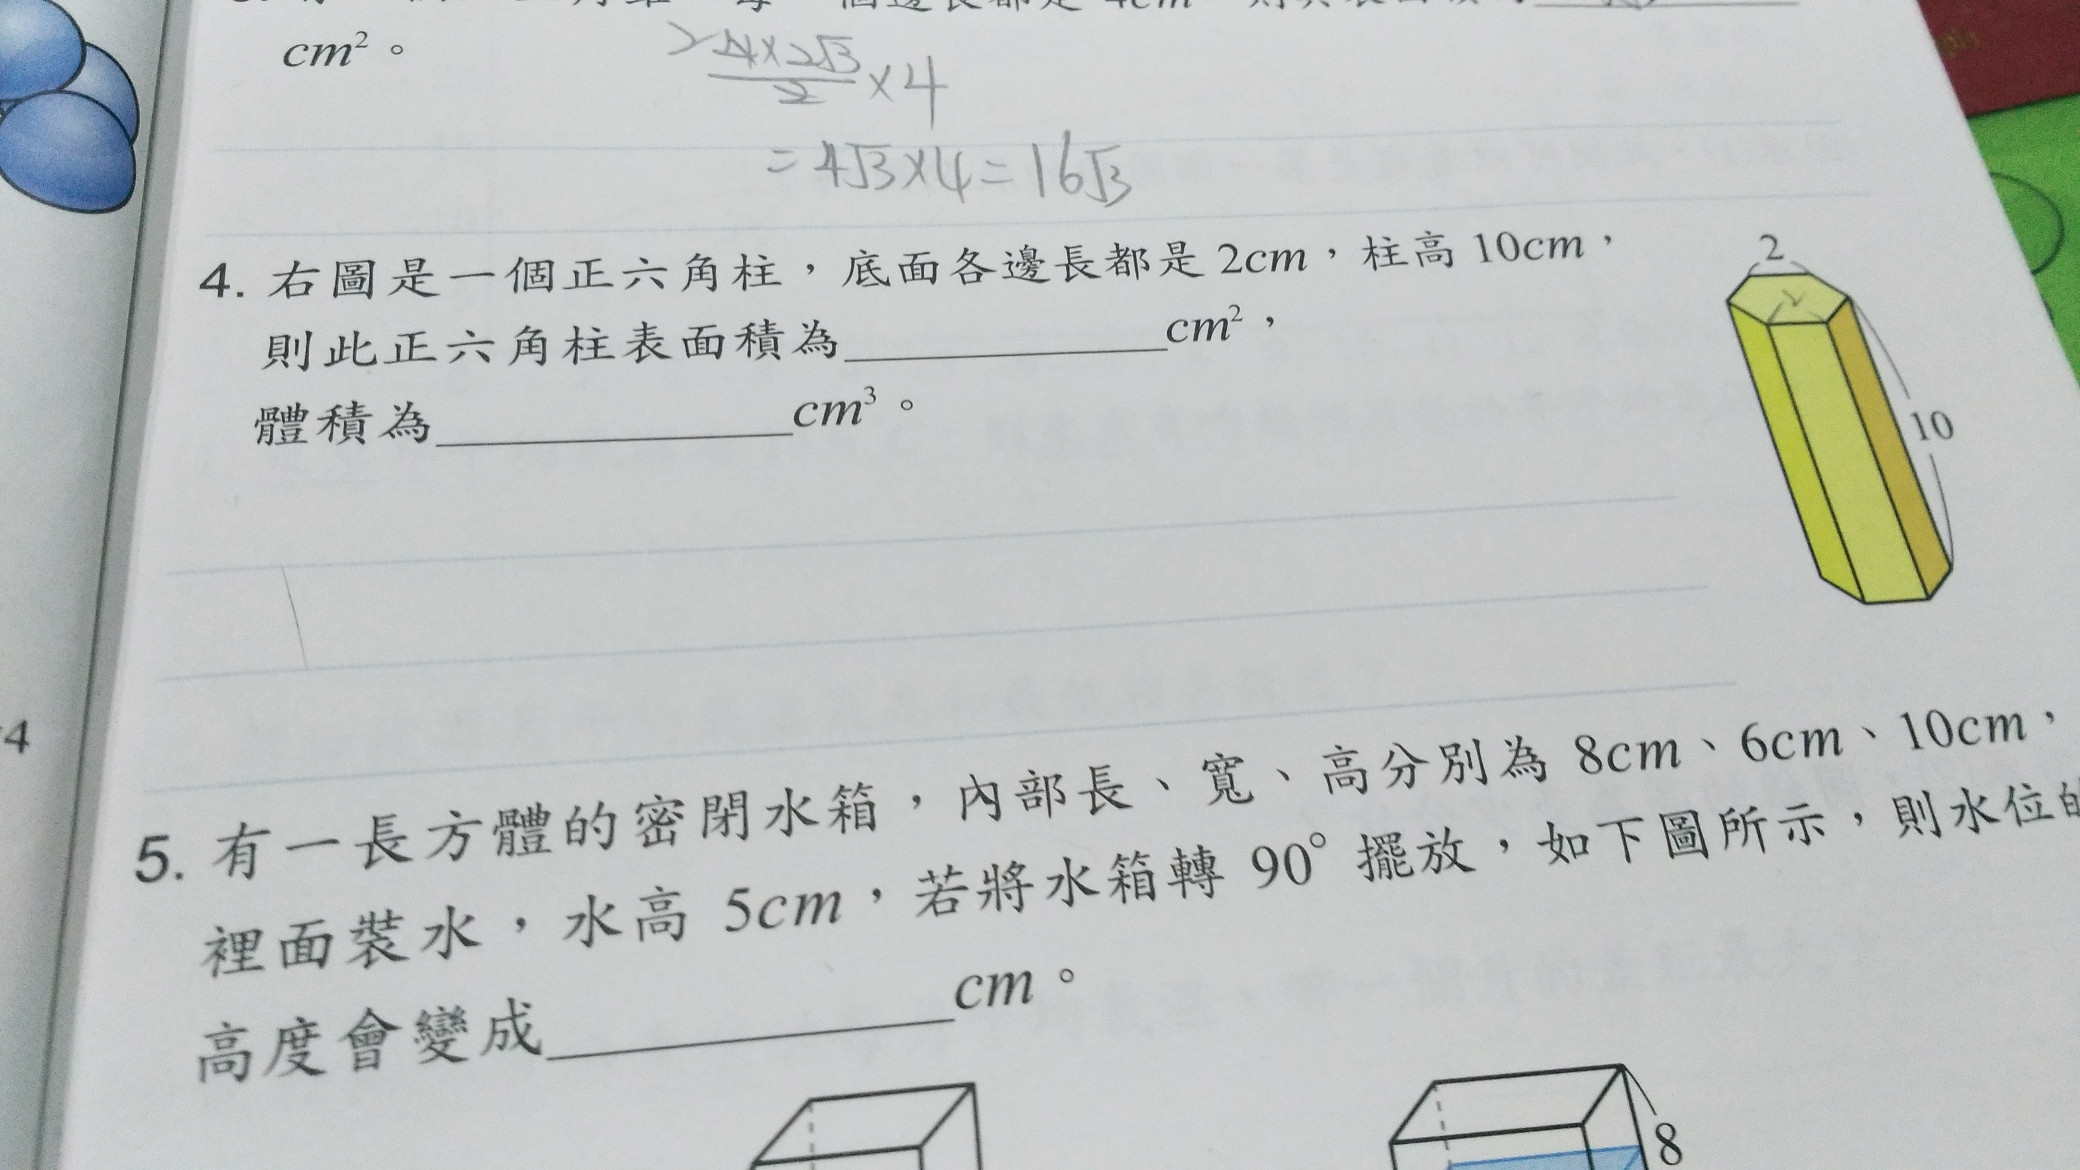 個邊長都是 4cm
cm²。
4×2√3
2
×4
=4√3×4=16√3
4. 右圖是一個正六角柱，底面各邊長都是 2cm，柱高 10cm，
則此正六角柱表面積為＿＿＿＿＿＿cm²，
體積為＿＿＿＿＿＿cm³。
2
10
4
5. 有一長方體的密閉水箱，內部長、寬、高分別為 8cm、6cm、10cm，
裡面裝水，水高 5cm，若將水箱轉 90° 擺放，如下圖所示，則水位的
高度會變成＿＿＿＿＿＿cm。
8